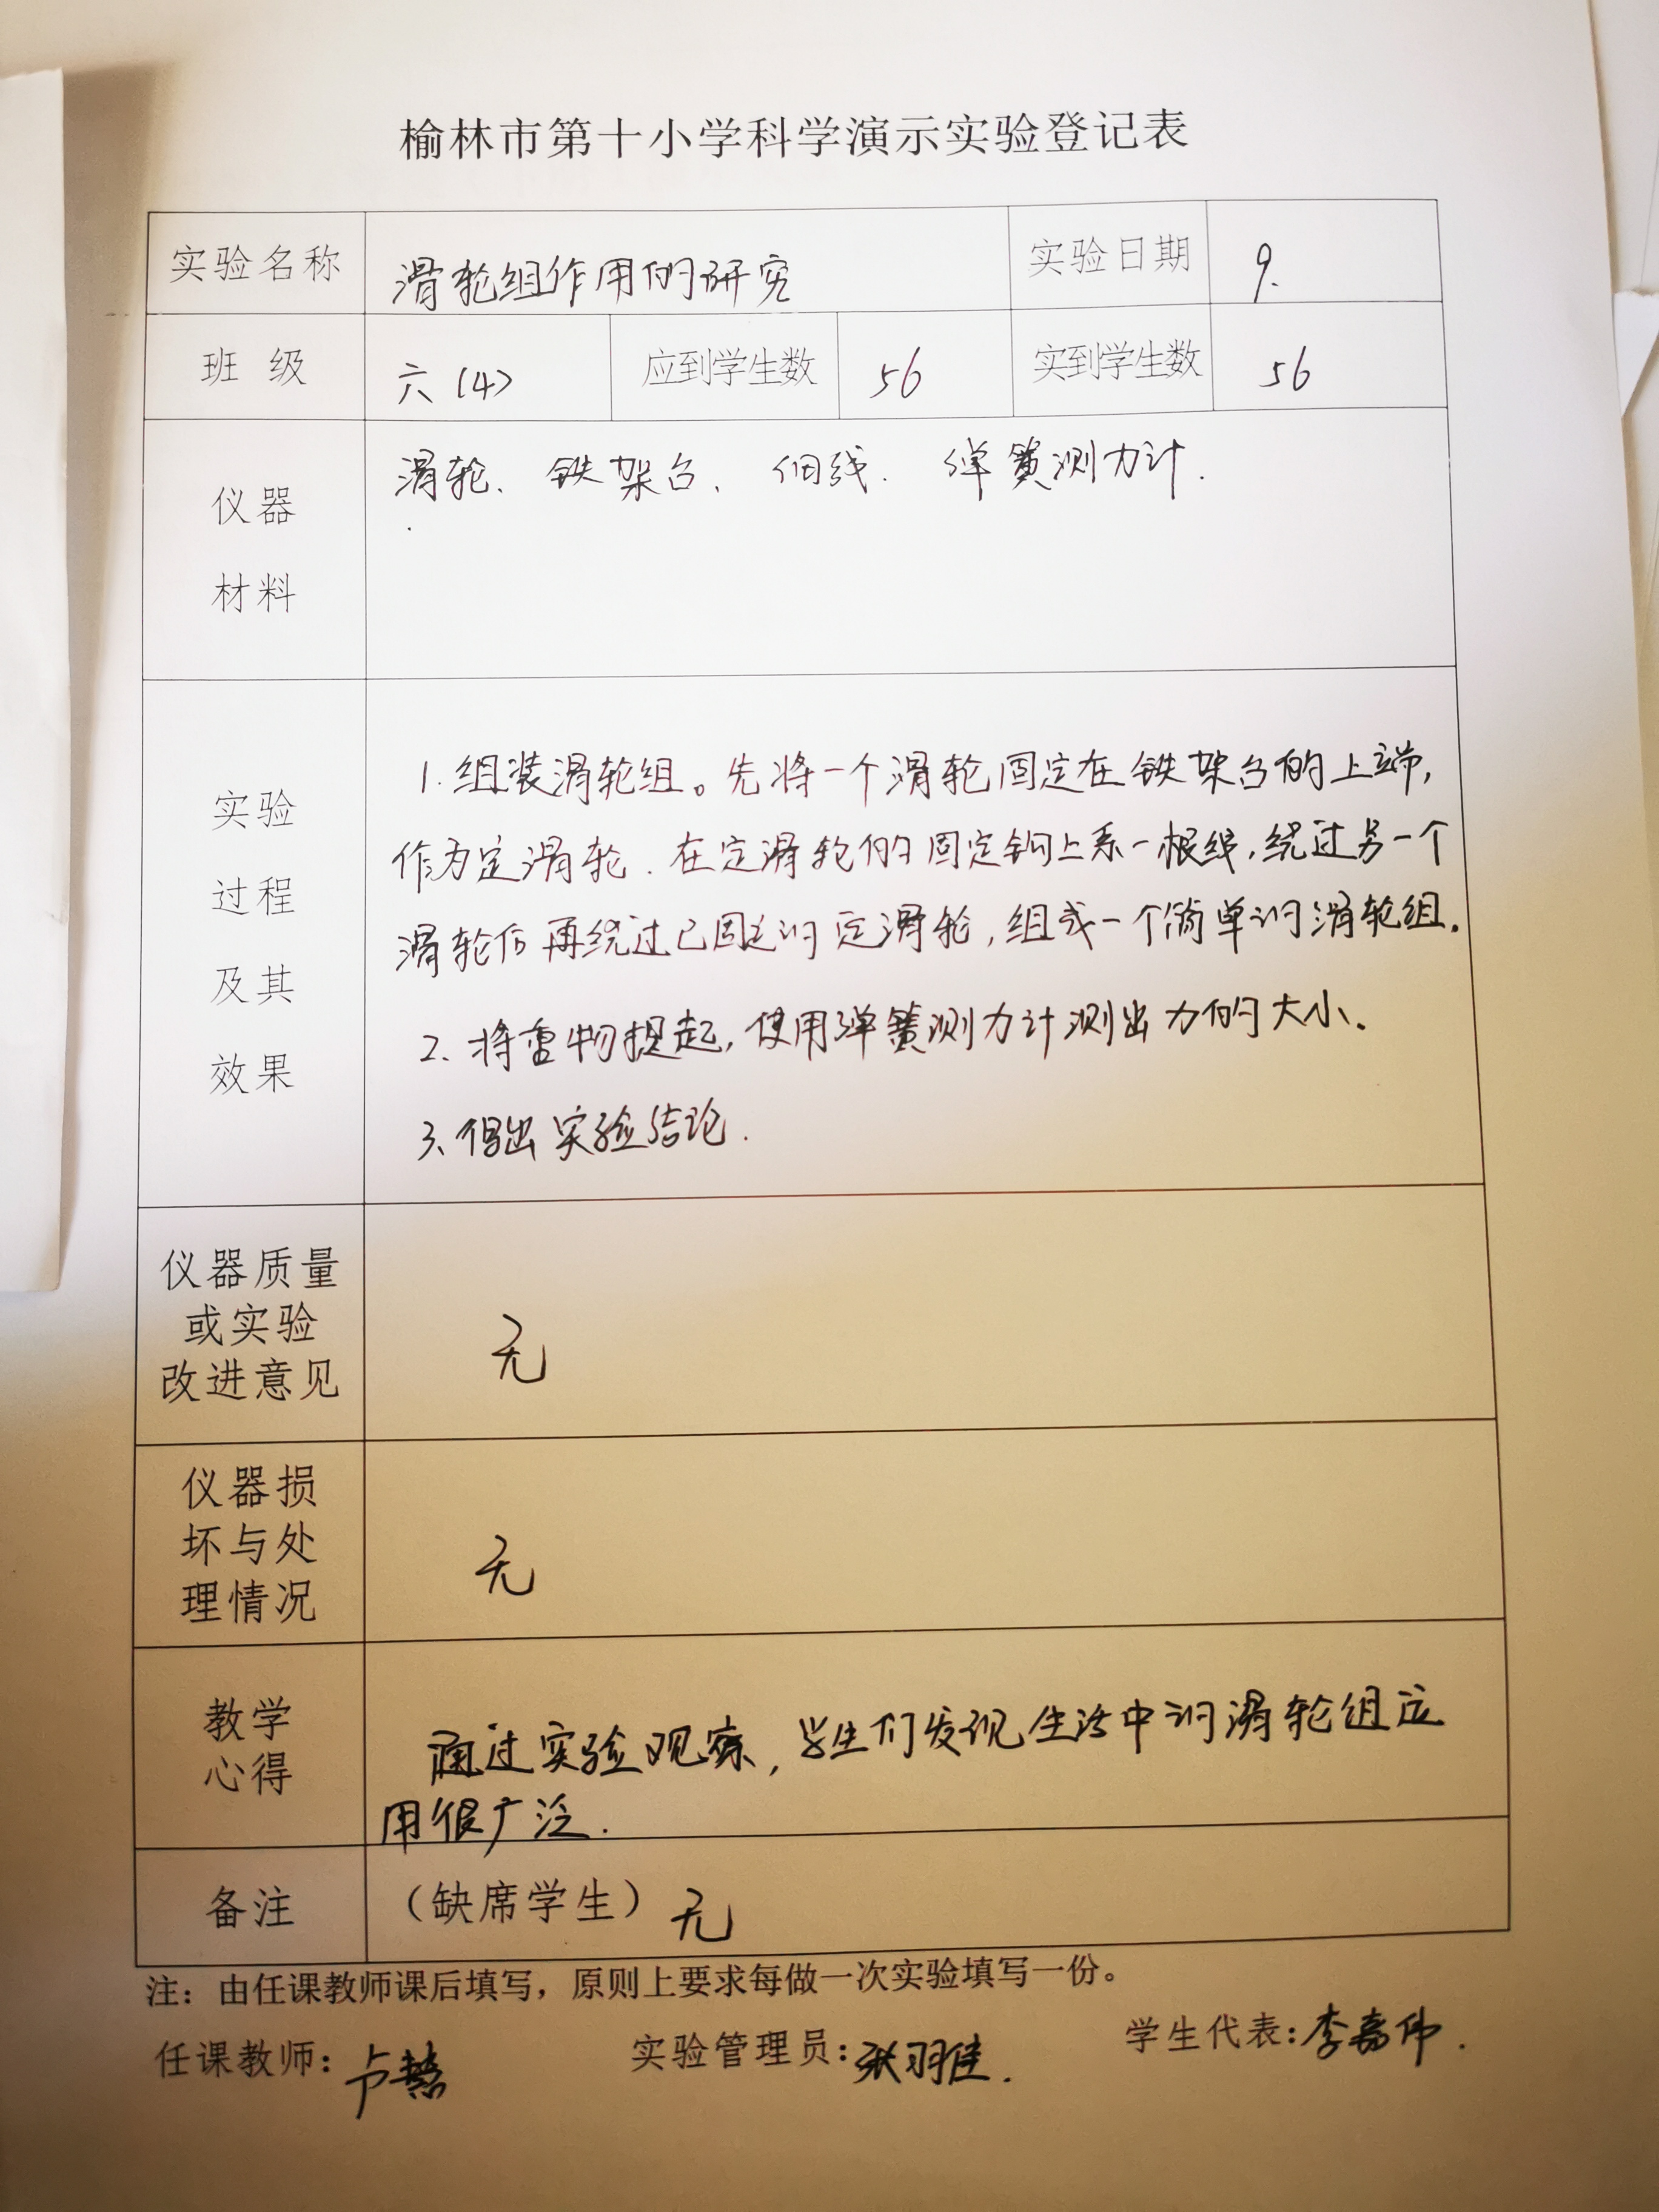 榆林市第十小学科学演示实验登记表
实验名称 滑轮组作用的研究 实验日期 9.
班 级 六(4) 应到学生数 56 实到学生数 56
仪器
材料
滑轮、铁架台、细线、弹簧测力计.
实验
过程
及其
效果
1.组装滑轮组。先将一个滑轮固定在铁架台的上端,
作为定滑轮.在定滑轮的固定钩上系一根线,绕过另一个
滑轮后再绕过已固定的定滑轮,组成一个简单的滑轮组.
2、将重物提起,使用弹簧测力计测出力的大小.
3、得出实验结论.
仪器质量
或实验
改进意见
无
仪器损
坏与处
理情况
无
教学
心得
通过实验观察,学生们发现生活中的滑轮组应
用很广泛.
备注 (缺席学生) 无
注：由任课教师课后填写，原则上要求每做一次实验填写一份。
任课教师：卢慧 实验管理员：张羽佳. 学生代表：李嘉伟.